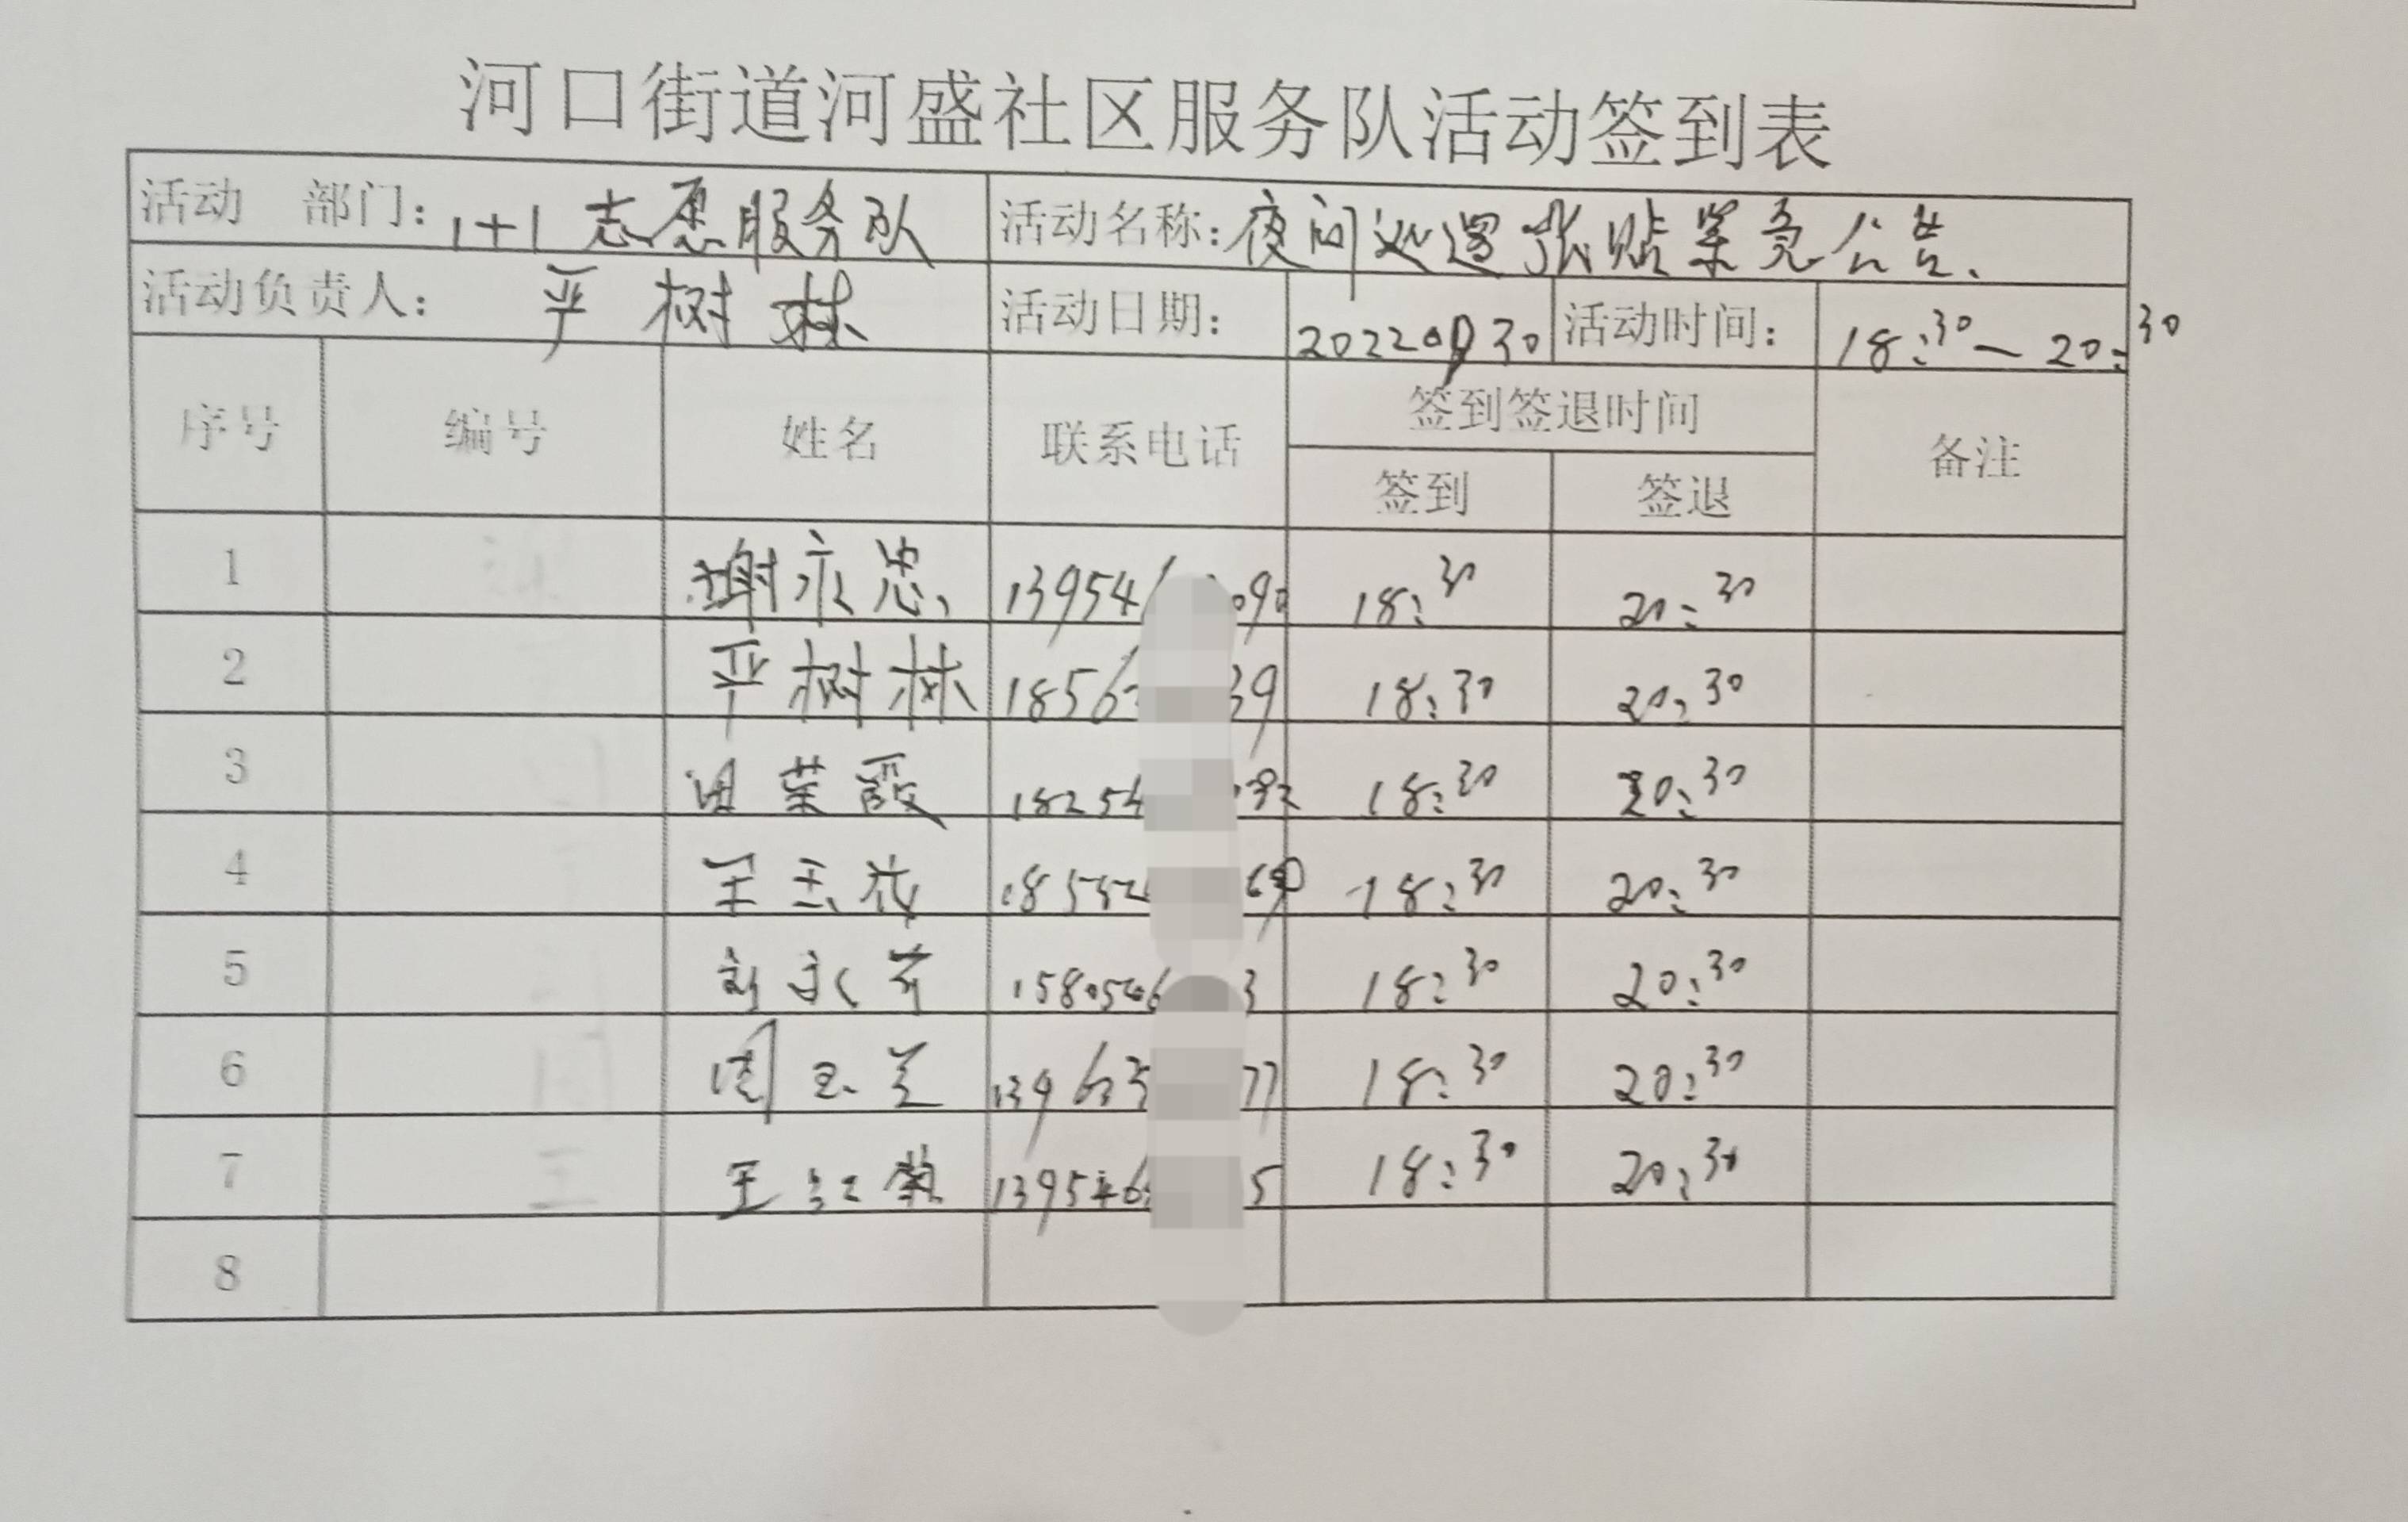 河口街道河盛社区服务队活动签到表
活动 部门: 1+1志愿服务队 活动名称: 夜间巡逻张贴禁竞公告.
活动负责人: 严树林 活动日期: 2022 30 活动时间: 18:30—20:30
序号 编号 姓名 联系电话 签到签退时间 备注
签到 签退
1 谢永忠 13954 090 18:30 20:30
2 严树林 1856 39 18:30 20:30
3 田荣霞 18254 82 18:30 20:30
4 王玉花 18552 69 18:30 20:30
5 刘永芹 1580546 3 18:30 20:30
6 周玉兰 13963 77 18:30 20:30
7 王红菊 139546 5 18:30 20:30
8